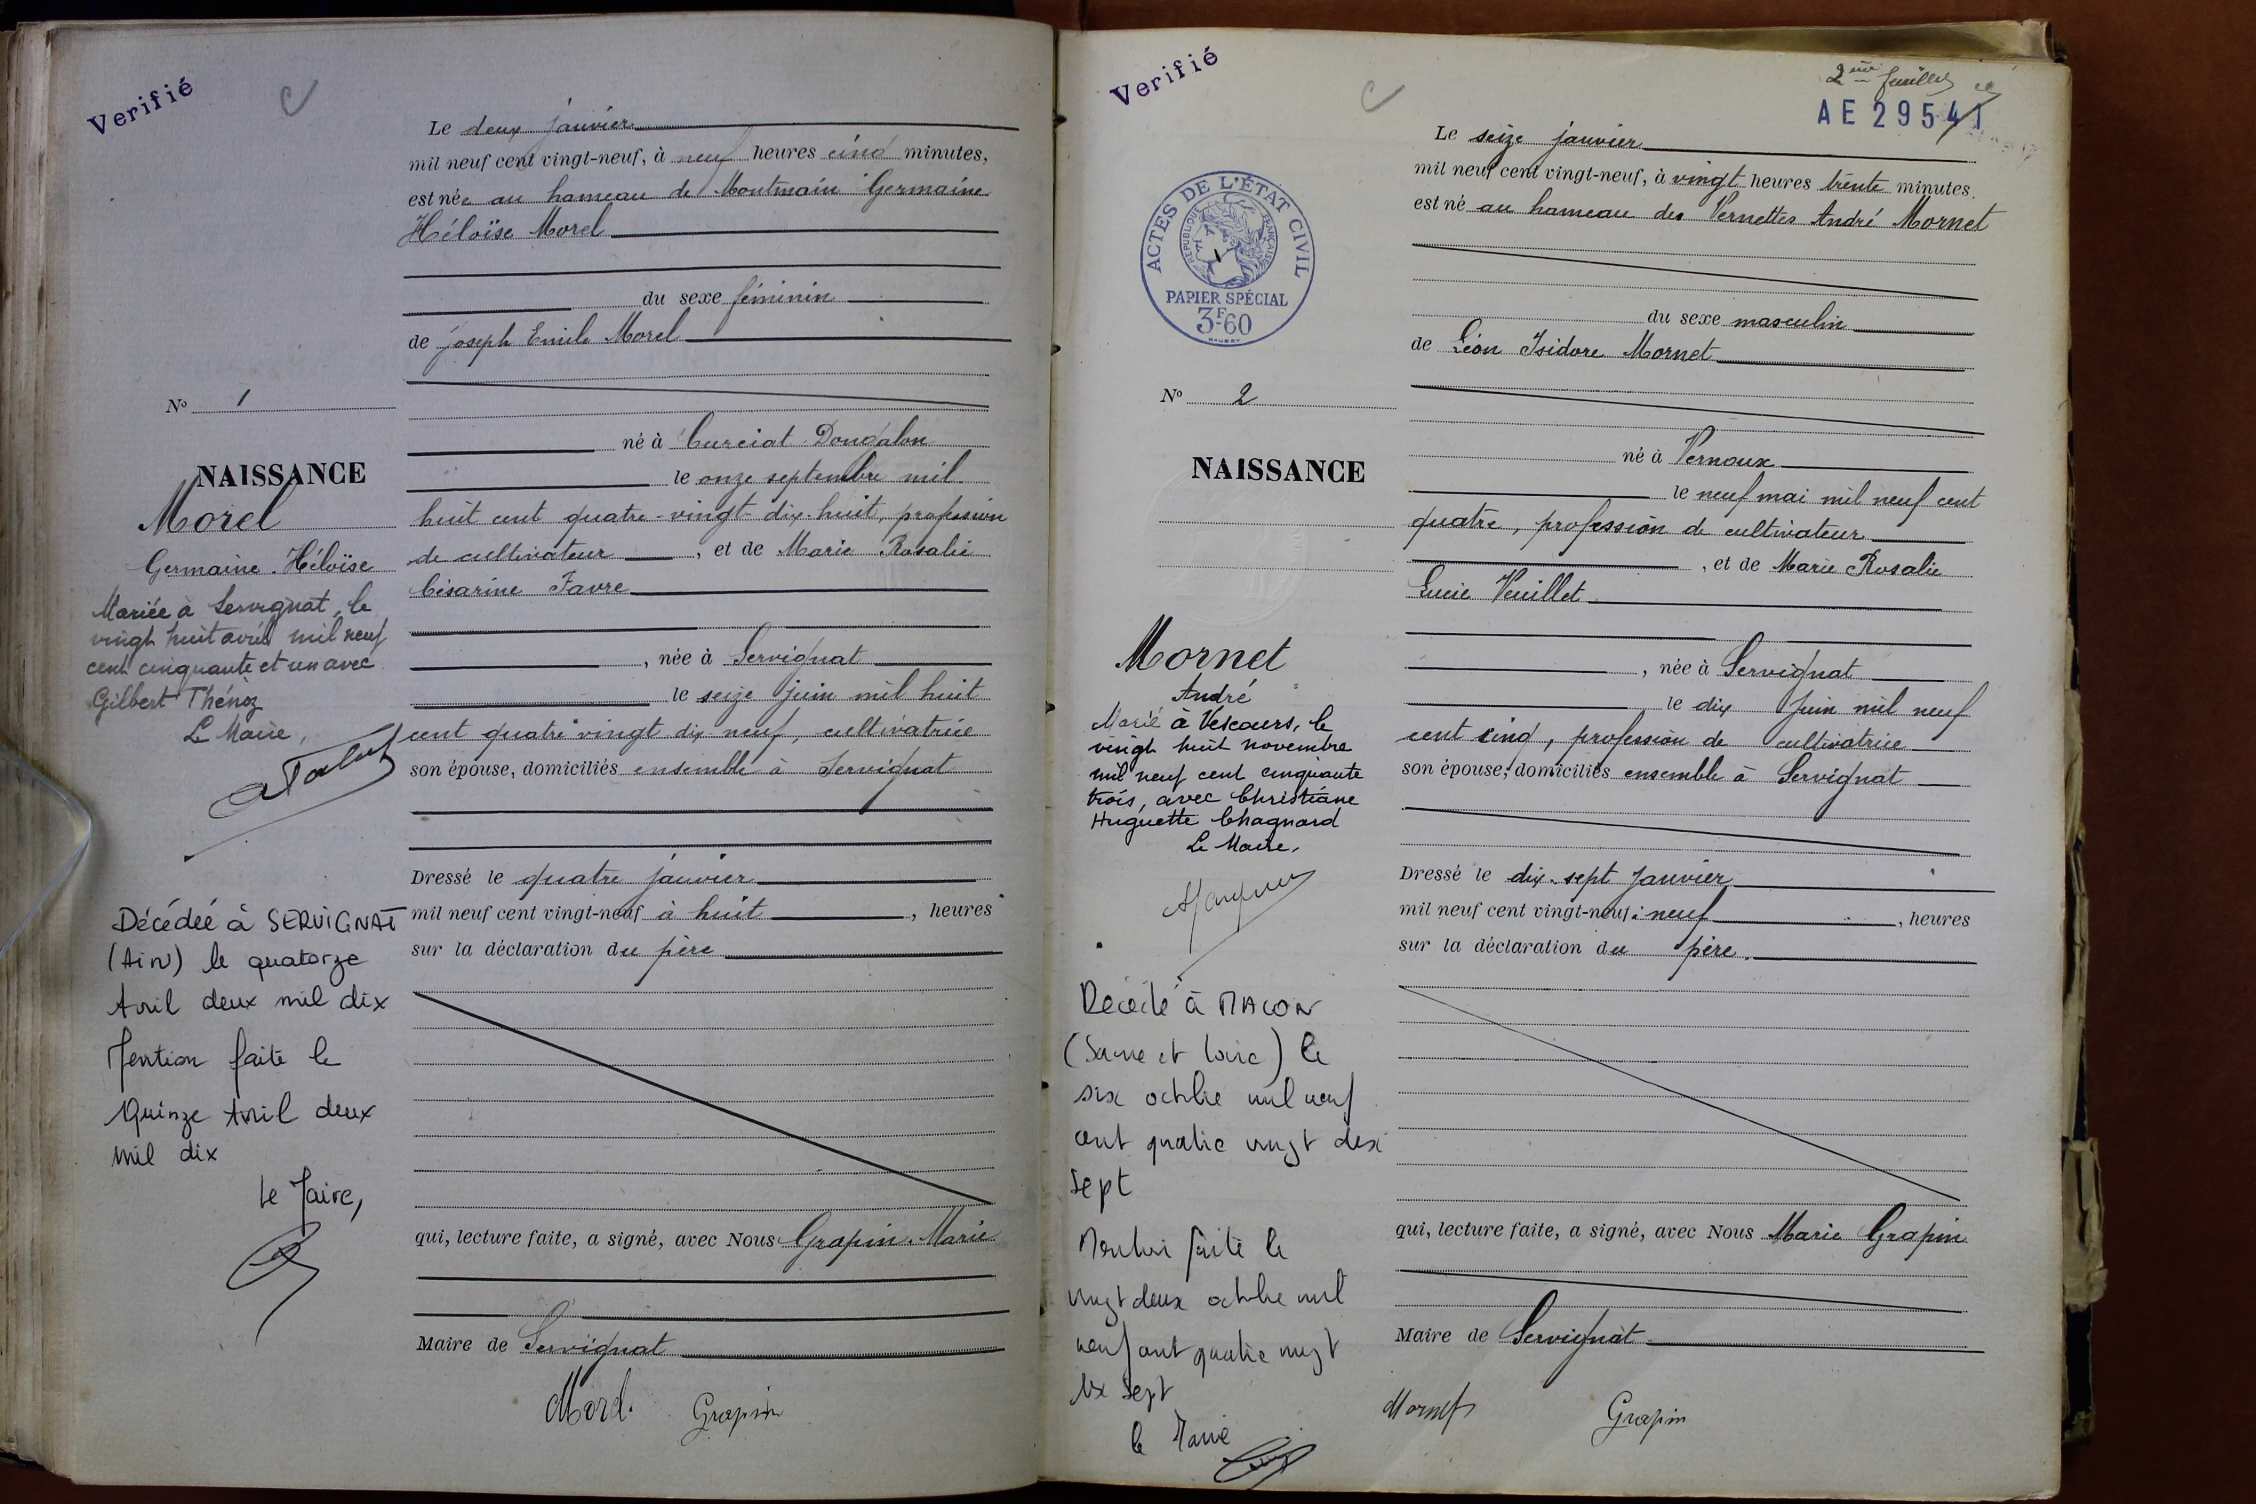 Verifié
C
Le deux janvier
mil neuf cent vingt-neuf, à neuf heures cinq minutes,
est née au hameau de Montmain Germaine
Héloïse Morel
du sexe féminin
de Joseph Emile Morel
né à Curciat-Dongalon
le onze septembre mil
huit cent quatre-vingt-dix-huit, profession
de cultivateur, et de Marie Rosalie
Césarine Favre
, née à Servignat
le seize juin mil huit
cent quatre vingt dix neuf, cultivatrice
son épouse, domiciliés ensemble à Servignat
Dressé le quatre janvier
mil neuf cent vingt-neuf à huit, heures
sur la déclaration du père
qui, lecture faite, a signé, avec Nous Grapin Marie
Maire de Servignat
Morel. Grapin
No 1
NAISSANCE
Morel
Germaine Héloïse
Mariée à Servignat, le
vingt huit avril mil neuf
cent cinquante et un avec
Gilbert Thénoz
Le Maire,
Décédée à SERVIGNAT
(Ain) le quatorze
Avril deux mil dix
Mention faite le
Quinze Avril deux
mil dix
Le Maire,
Verifié
C
2me feuillet
AE 29541
Le seize janvier
mil neuf cent vingt-neuf, à vingt heures trente minutes
est né au hameau des Vernettes André Mornet
du sexe masculin
de Léon Isidore Mornet
né à Vernoux
le neuf mai mil neuf cent
quatre, profession de cultivateur
, et de Marie Rosalie
Lucie Veuillet
, née à Servignat
le dix juin mil neuf
cent cinq, profession de cultivatrice
son épouse, domiciliés ensemble à Servignat
Dressé le dix-sept janvier
mil neuf cent vingt-neuf à neuf, heures
sur la déclaration du père.
qui, lecture faite, a signé, avec Nous Marie Grapin
Maire de Servignat
Mornet Grapin
ACTES DE L'ÉTAT CIVIL
RÉPUBLIQUE FRANÇAISE
PAPIER SPÉCIAL
3F60
No 2
NAISSANCE
Mornet
André
Marié à Vescours, le
vingt huit novembre
mil neuf cent cinquante
trois, avec Christiane
Huguette Chagnard
Le Maire,
Décédé à MACON
(Saone et Loire) le
six octobre mil neuf
cent quatre vingt dix
sept
Mention faite le
vingt deux octobre mil
neuf cent quatre vingt
dix sept
le Maire